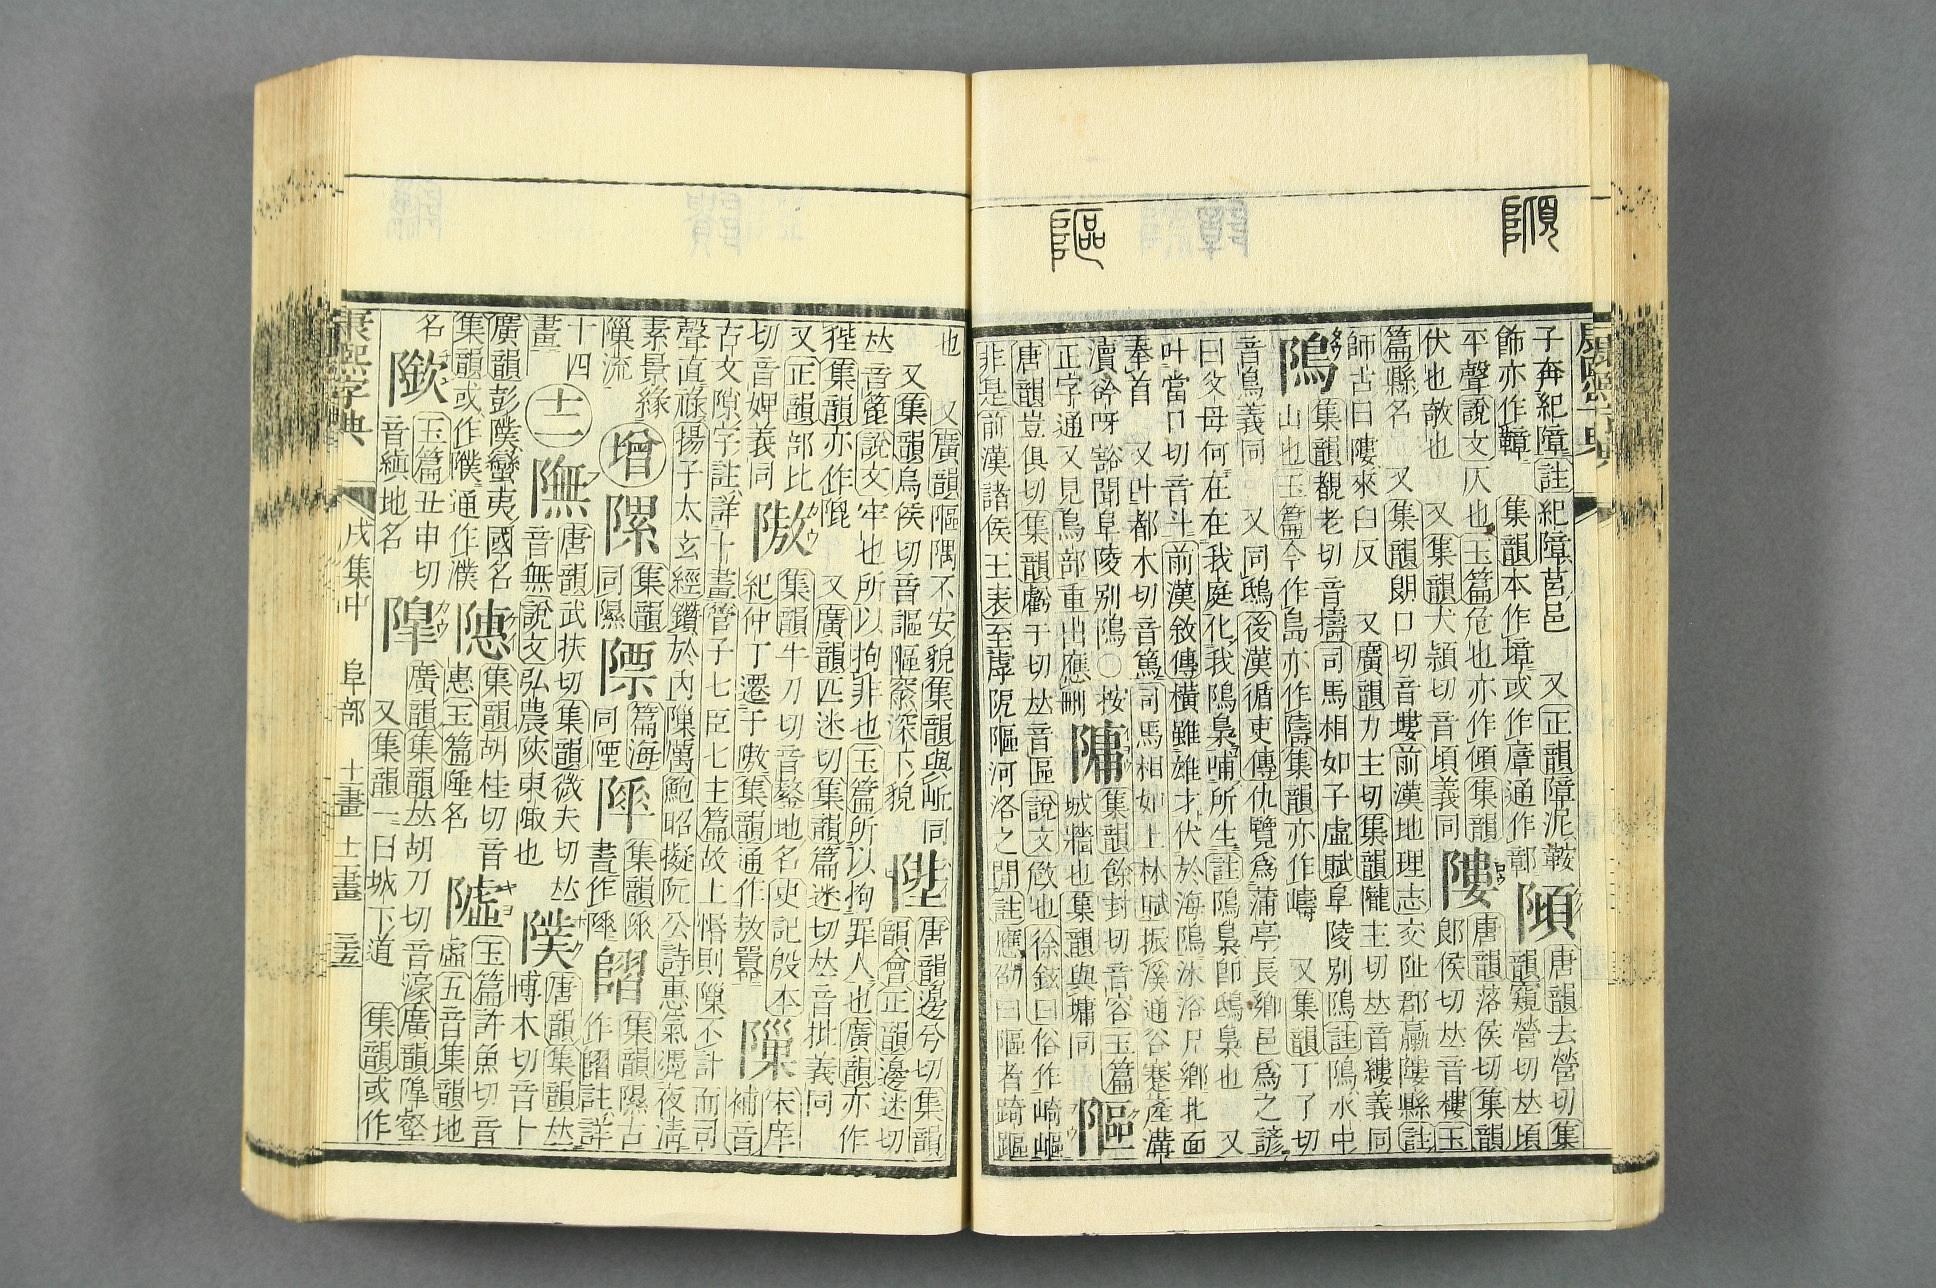 子奔紀障註紀障莒邑　又正韻障泥鞍
飾亦作鞾　集韻本作墇或作㢓通作鄣
𨻺
唐韻去營切集
韻窺營切𠀤頃
平聲說文仄也玉篇危也亦作傾集韻
伏也敧也　又集韻犬潁切音頃義同
𨻻
唐韻落侯切集韻
郞侯切𠀤音樓玉
篇縣名　又集韻朗口切音塿前漢地理志交阯郡羸𨻻縣註
師古曰𨻻來口反　又廣韻力主切集韻隴主切𠀤音縷義同
隝
集韻覩老切音擣司馬相如子虛賦阜陵別隝註隝水中
山也玉篇今作島亦作隯集韻亦作嶹　又集韻丁了切
音鳥義同　又同鴟後漢循吏傳仇覽爲蒲亭長鄕邑爲之諺
曰父母何在在我庭化我隝梟哺所生註隝梟卽鴟梟也　又
叶當口切音斗前漢敘傳橫雖雄才伏於海隝沐浴尸鄕北面
奉首　又叶都木切音篤司馬相如上林賦振溪通谷蹇產溝
瀆谽呀豁閜阜陵別隝○按
正字通又見鳥部重出應刪
墉
集韻餘封切音容玉篇
城牆也集韻與墉同
𨻲
唐韻豈俱切集韻虧于切𠀤音區說文𢼄也徐鉉曰俗作崎嶇
非是前漢諸侯王表至虖阸𨻲河洛之閒註應劭曰𨻲者踦𨻲
也　又廣韻𨻲隅不安貌集韻與岴同
又集韻烏侯切音謳𨻲𥥛深下貌
陛
唐韻邊兮切集韻
韻會正韻邊迷切
𠀤音篦說文牢也所以拘非也玉篇所以拘罪人也廣韻亦作
狴集韻亦作㹍　又廣韻匹迷切集韻篇迷切𠀤音批義同
又正韻部比
切音婢義同
隞
集韻牛刀切音鼇地名史記殷本
紀仲丁遷于隞集韻通作敖囂
𨻼
宋庠
補音
古文隙字註詳十畫管子七臣七主篇故上惽則𨻼不計而司
聲直祿揚子太玄經鑽於內𨻼厲鮑昭擬阮公詩惠氣憑夜淸
素景緣
𨻼流
增
𨻽
集韻
同隰
𨻺
篇海
同陻
集韻
書作
集韻隰古
作㙷註詳
十四
畫
十二
𨼊
唐韻武扶切集韻微夫切𠀤
音無說文弘農陝東陬也
𨼅
唐韻集韻𠀤
博木切音卜
廣韻彭𨼅蠻夷國名
集韻或作㒒通作濮
𨼑
集韻胡桂切音
惠玉篇陲名
𨼋
玉篇許魚切音
虛五音集韻地
名
𨼐
玉篇丑申切
音縝地名
隍
廣韻集韻𠀤胡刀切音濠廣韻隍壑
又集韻一曰城下道　集韻或作
康熙字典
戌集中　阜部　十一畫　十二畫　三五
康熙字典